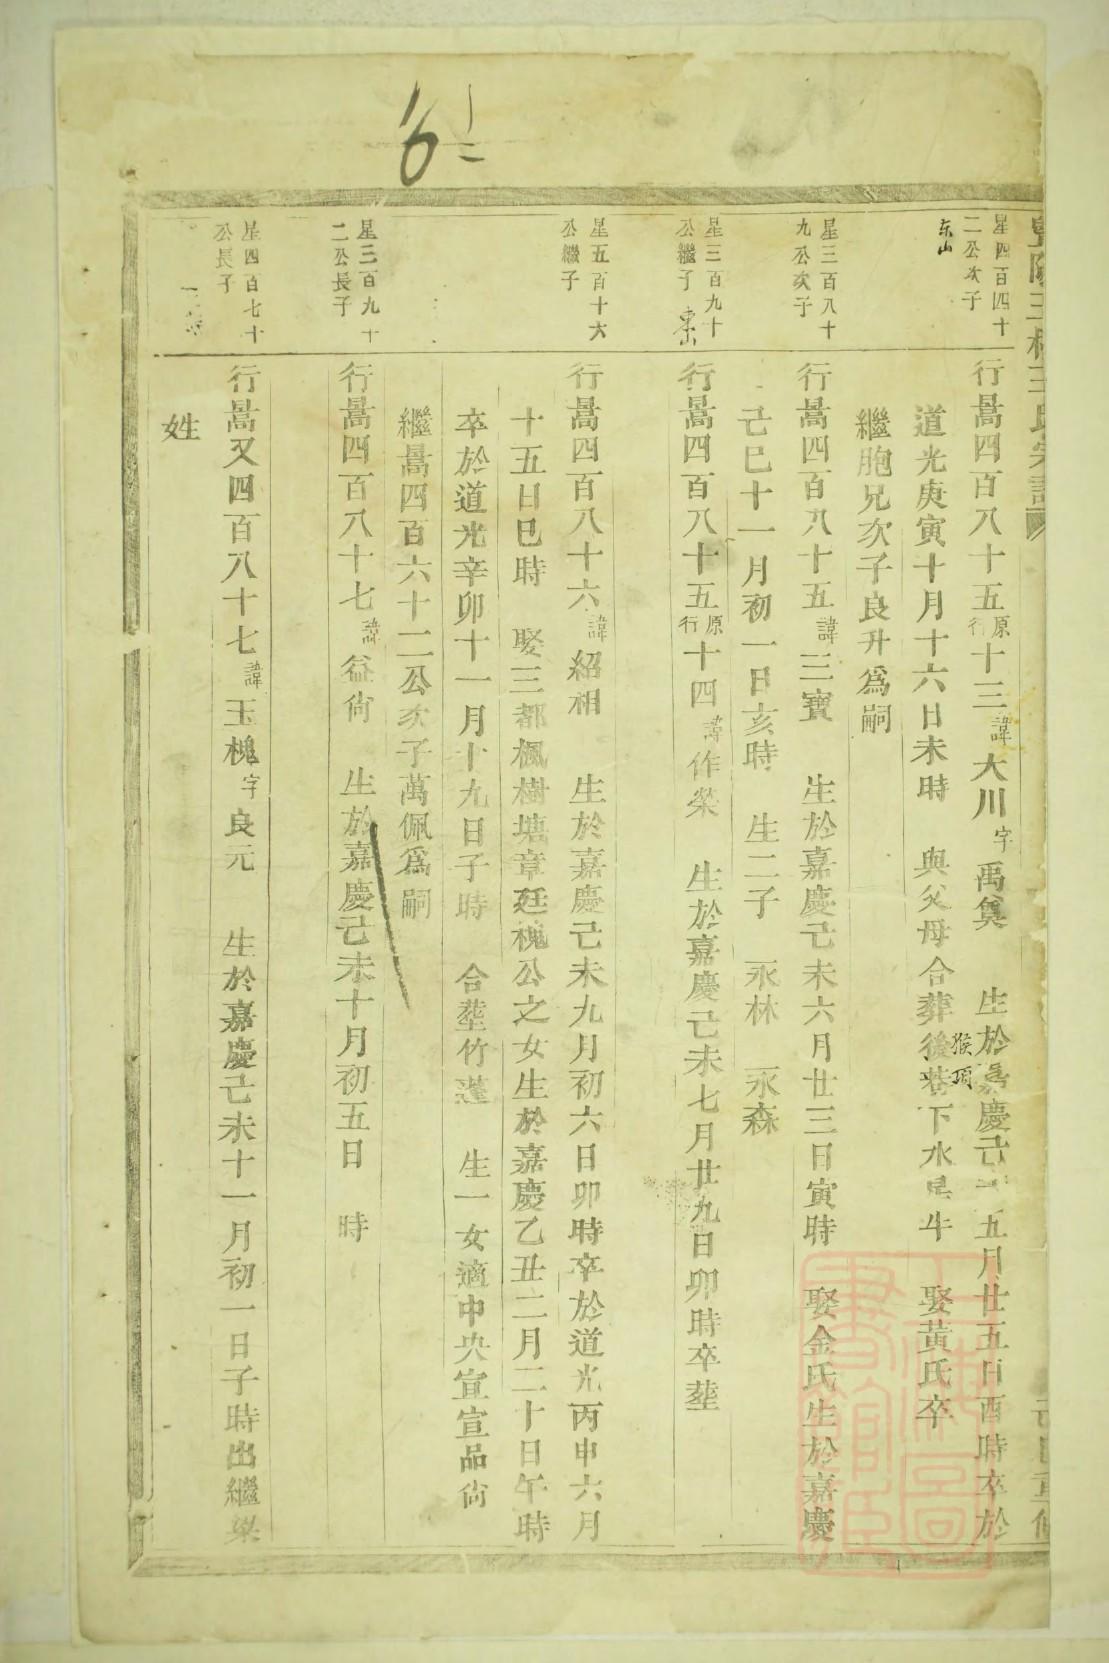 己巳重修
星四百四十
二公次子
东山
行暠四百八十五原行十三諱大川字禹奠 生於嘉慶己 五月廿五日酉時卒於
道光庚寅十月十六日未時 與父母合葬後巷下水 牛 娶黃氏卒
猴項
繼胞兄次子良升爲嗣
星三百八十
九公次子
行暠四百八十五諱三寶 生於嘉慶己未六月廿三日寅時 娶金氏生於嘉慶
己巳十一月初一日亥時 生二子 永林 永森
星三百九十
公繼子 東山
行暠四百八十五原行十四諱作榮 生於嘉慶己未七月廿九日卯時卒塟
星五百十六
公繼子
行暠四百八十六諱紹相 生於嘉慶己未九月初六日卯時卒於道光丙申六月
十五日巳時 娶三都楓樹塘章廷槐公之女生於嘉慶乙丑二月二十日午時
卒於道光辛卯十一月十九日子時 合塟竹蓬 生一女適中央宣宣品尙
繼暠四百六十二公次子萬佩爲嗣
星三百九十
二公長子
行暠四百八十七諱益尙 生於嘉慶己未十月初五日 時
星四百七十
公長子
行暠又四百八十七諱玉槐字良元 生於嘉慶己未十一月初一日子時出繼梁
姓